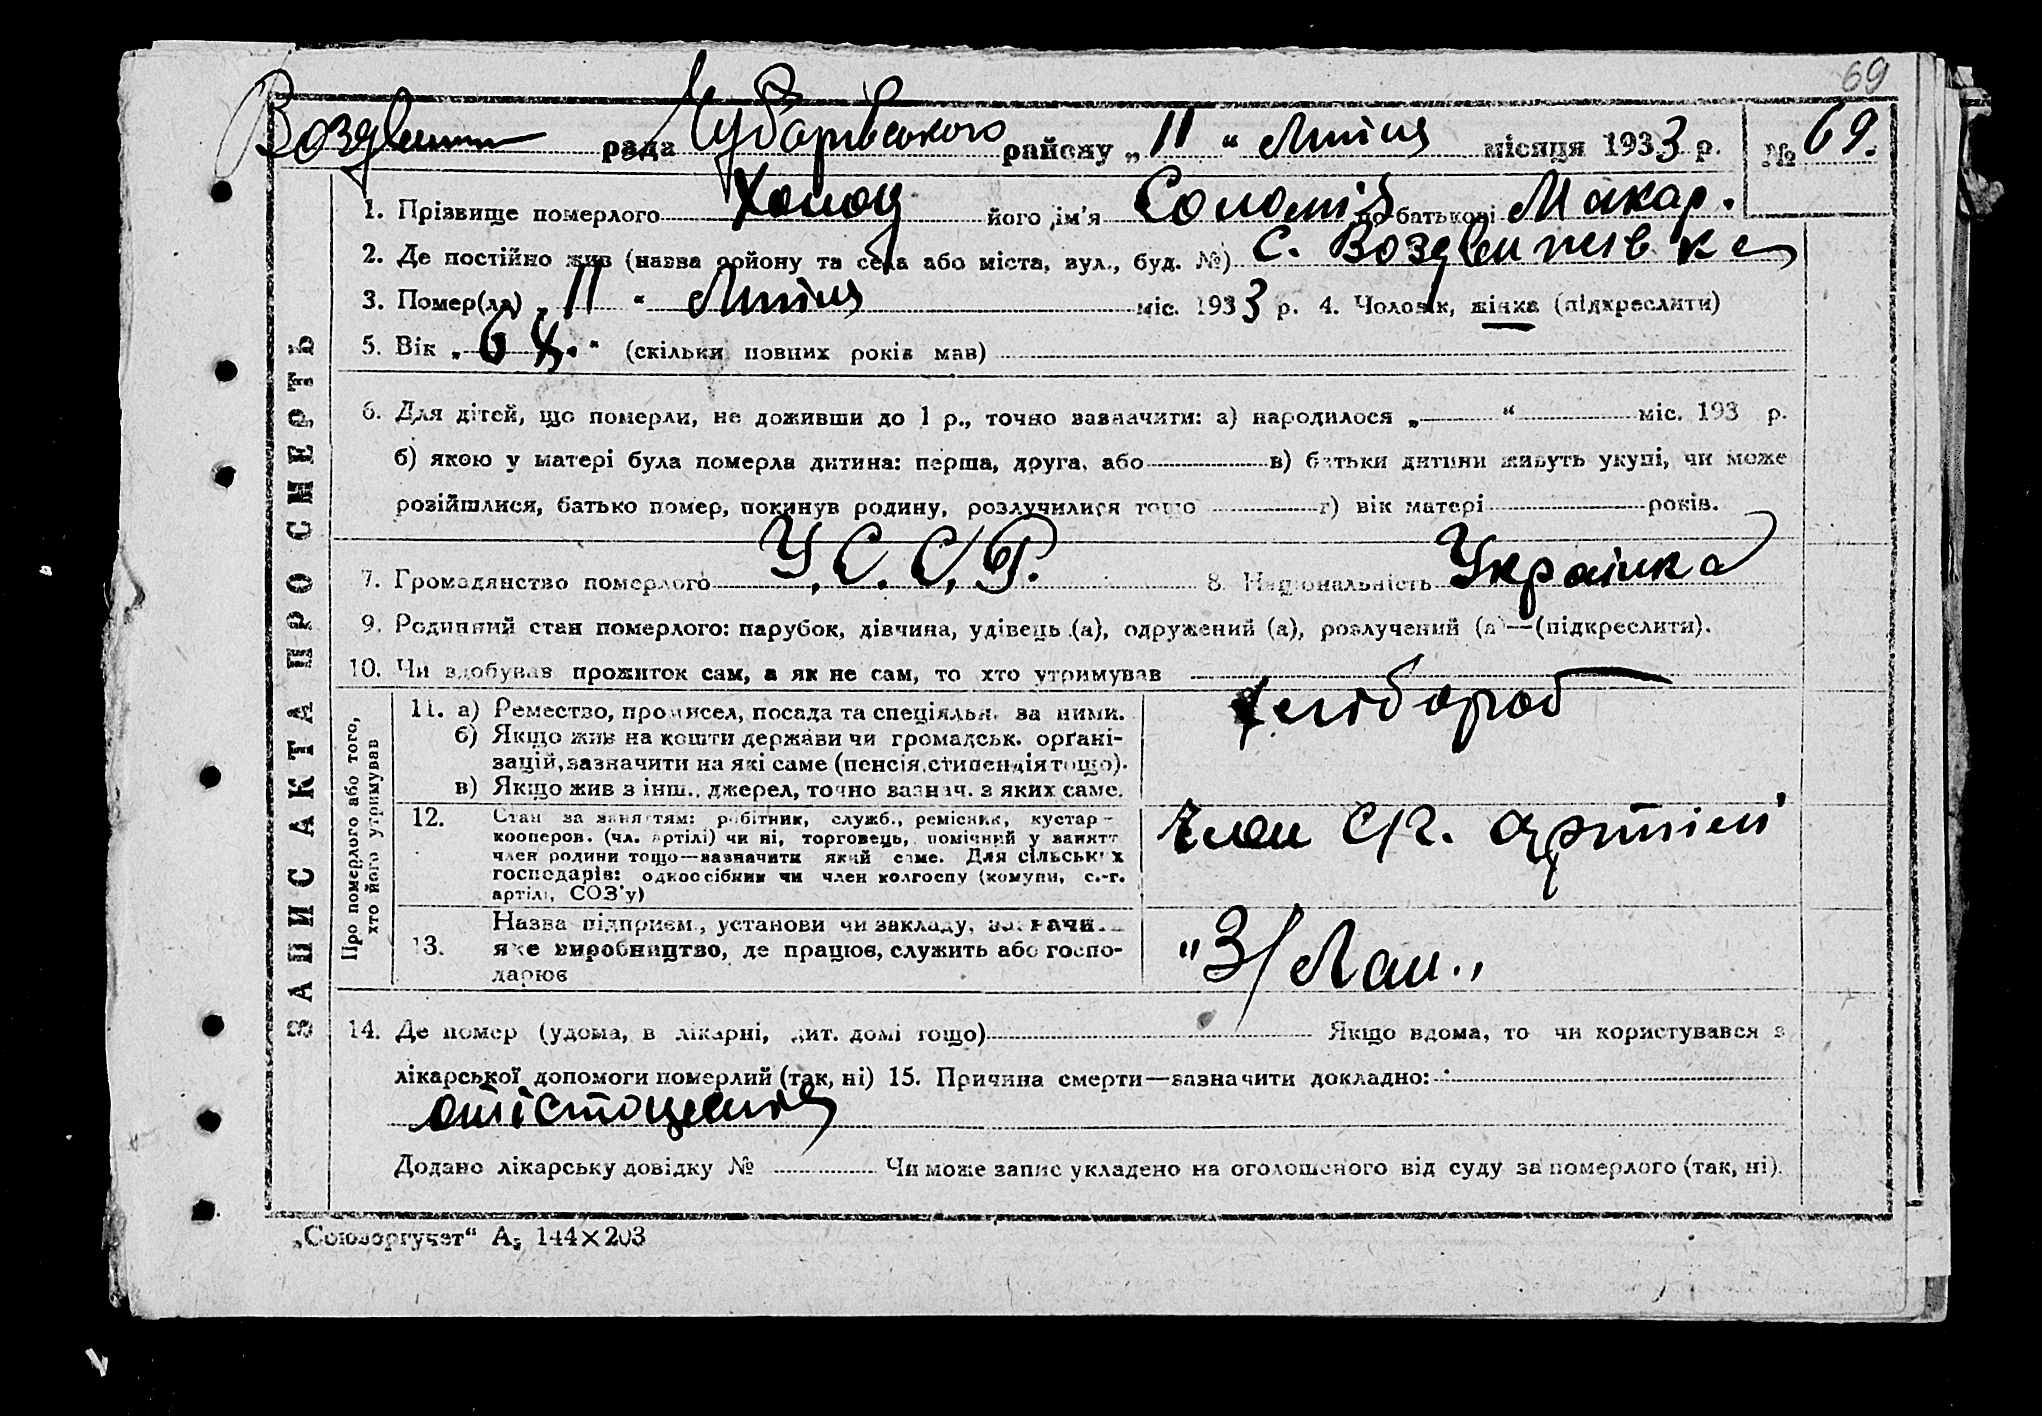 69
Воздвиж рада Чубарівського району „11“ Липня місяця 1933 р. № 69.
ЗАПИС АКТА ПРО СМЕРТЬ
1. Прізвище померлого його ім'я Соломія по батькові Макар.
2. Де постійно жив (назва району та села або міста, вул., буд. №) с. Воздвижівка
3. Помер(ла) „11“ Липня міс. 1933 р. 4. Чоловік, жінка (підкреслити)
5. Вік „ “ (скільки повних років мав)
6. Для дітей, що померли, не доживши до 1 р., точно зазначити: а) народилося „ “ міс. 193 р.
б) якою у матері була померла дитина: перша, друга, або в) батьки дитини живуть укупі, чи може
розійшлися, батько помер, покинув родину, розлучилися тощо г) вік матері років.
7. Громадянство померлого У.С.С.Р. 8. Національність Українка
9. Родинний стан померлого: парубок, дівчина, удівець (а), одружений (а), розлучений (а)—(підкреслити).
10. Чи здобував прожиток сам, а як не сам, то хто утримував
Про померлого або того, хто його утримував
11. а) Ремество, промисел, посада та спеціяльн. за ними. хлібороб
б) Якщо жив на кошти держави чи громадськ. органі-
зацій, зазначити на які саме (пенсія, стипендія тощо).
в) Якщо жив з інш. джерел, точно зазнач. з яких саме.
12. Стан за заняттям: робітник, служб., ремісник, кустар-
кооперов. (чл. артілі) чи ні, торговець, помічний у занятт
член родини тощо—зазначити який саме. Для сільських
господарів: одноосібник чи член колгоспу (комуни, с.-г.
артілі, СОЗ'у)
Член с/г. артілі
13. Назва підприєм., установи чи закладу, зазначи.
яке виробництво, де працює, служить або госпо-
дарює
"З/Лан"
14. Де помер (удома, в лікарні, дит. домі тощо) Якщо вдома, то чи користувався з
лікарської допомоги померлий (так, ні) 15. Причина смерти—зазначити докладно:
отістощения
Додано лікарську довідку № Чи може запис укладено на оголошеного від суду за померлого (так, ні).
„Союзоргучет“ А5 144×203